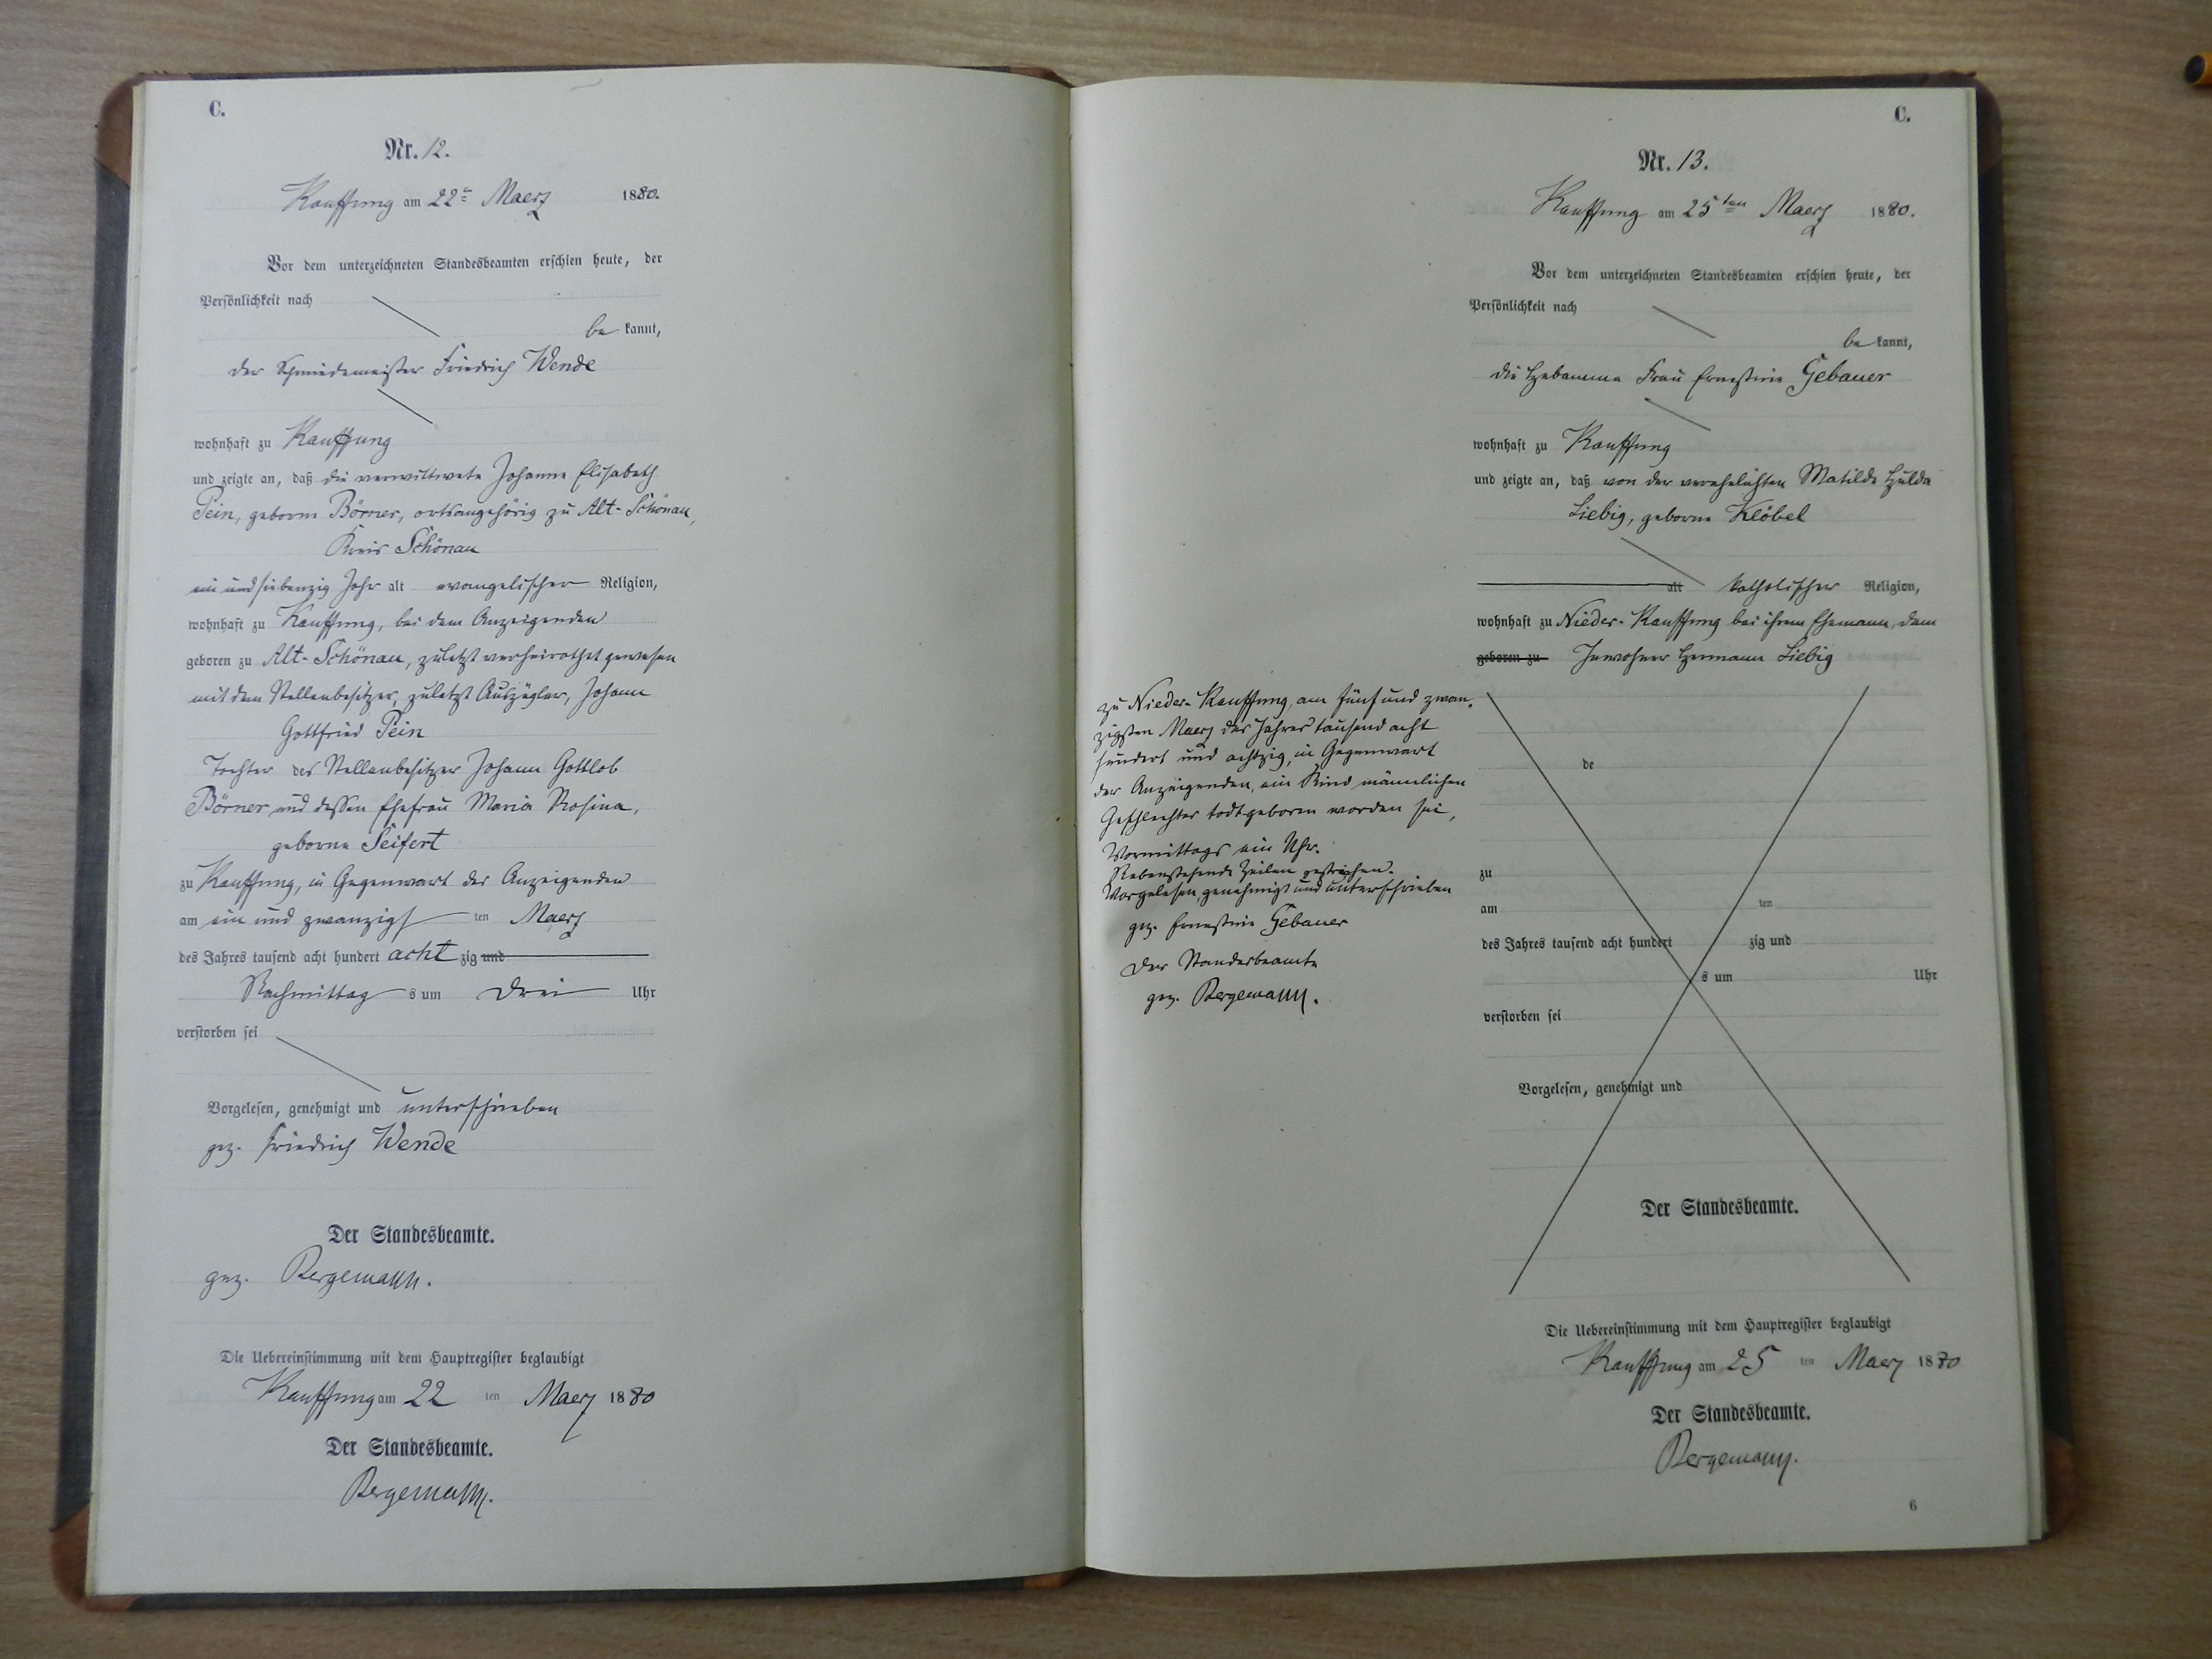 C.
Nr. 12.
Kauffung am 22ten Maerz 1880.
Vor dem unterzeichneten Standesbeamten erschien heute, der
Persönlichkeit nach
be kannt,
der Schmiedemeister Friedrich Wende
wohnhaft zu Kauffung
und zeigte an, daß die verwittwete Johanne Elisabeth
Pein, geborne Börner, ortsangehörig zu Alt-Schönau,
Kreis Schönau
ein und siebenzig Jahr alt evangelischer Religion,
wohnhaft zu Kauffung, bei dem Anzeigenden
geboren zu Alt-Schönau, zuletzt verheirathet gewesen
mit dem Stellenbesitzer, zuletzt Auszügler, Johann
Gottfried Pein
Tochter des Stellenbesitzer Johann Gottlob
Börner und dessen Ehefrau Maria Rosina,
geborne Seifert
zu Kauffung, in Gegenwart des Anzeigenden
am ein und zwanzigs ten Maerz
des Jahres tausend acht hundert acht zig und
Nachmittag s um drei Uhr
verstorben sei
Vorgelesen, genehmigt und unterschrieben
gez. Friedrich Wende
Der Standesbeamte.
gez. Bergemann.
Die Uebereinstimmung mit dem Hauptregister beglaubigt
Kauffung am 22 ten Maerz 1880
Der Standesbeamte.
Bergemann.
C.
Nr. 13.
Kauffung am 25ten Maerz 1880.
Vor dem unterzeichneten Standesbeamten erschien heute, der
Persönlichkeit nach
be kannt,
die Hebamme Frau Ernestine Gebauer
wohnhaft zu Kauffung
und zeigte an, daß von der verehelichten Matilde Hulda
Liebig, geborne Klöbel
alt katholischer Religion,
wohnhaft zu Nieder-Kauffung bei ihrem Ehemann, dem
geboren zu Inwohner Hermann Liebig
zu Nieder-Kauffung, am fünf und zwan-
zigsten Maerz des Jahres tausend acht
hundert und achtzig, in Gegenwart
der Anzeigenden, ein Kind männlichen
Geschlechtes todtgeboren worden sei,
Vormittags ein Uhr.
Nebenstehende Zeilen gestrichen.
Vorgelesen, genehmigt und unterschrieben
gez. Ernestine Gebauer
Der Standesbeamte
gez. Bergemann.
de
zu
am ten
des Jahres tausend acht hundert zig und
s um Uhr
verstorben sei
Vorgelesen, genehmigt und
Der Standesbeamte.
Die Uebereinstimmung mit dem Hauptregister beglaubigt
Kauffung am 25 ten Maerz 1880
Der Standesbeamte.
Bergemann.
6